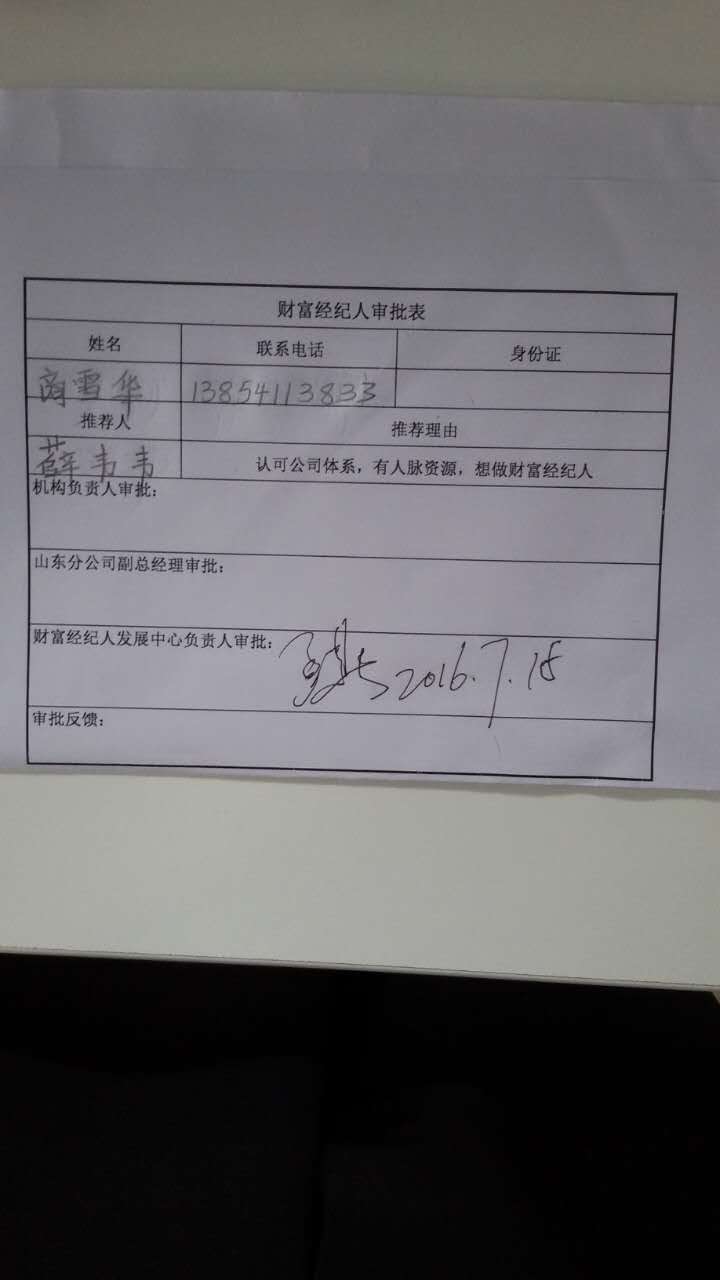 财富经纪人审批表
姓名 联系电话 身份证
商雪华 13854113833
推荐人 推荐理由
薛韦韦 认可公司体系，有人脉资源，想做财富经纪人
机构负责人审批：
山东分公司副总经理审批：
财富经纪人发展中心负责人审批： 2016.7.15
审批反馈：